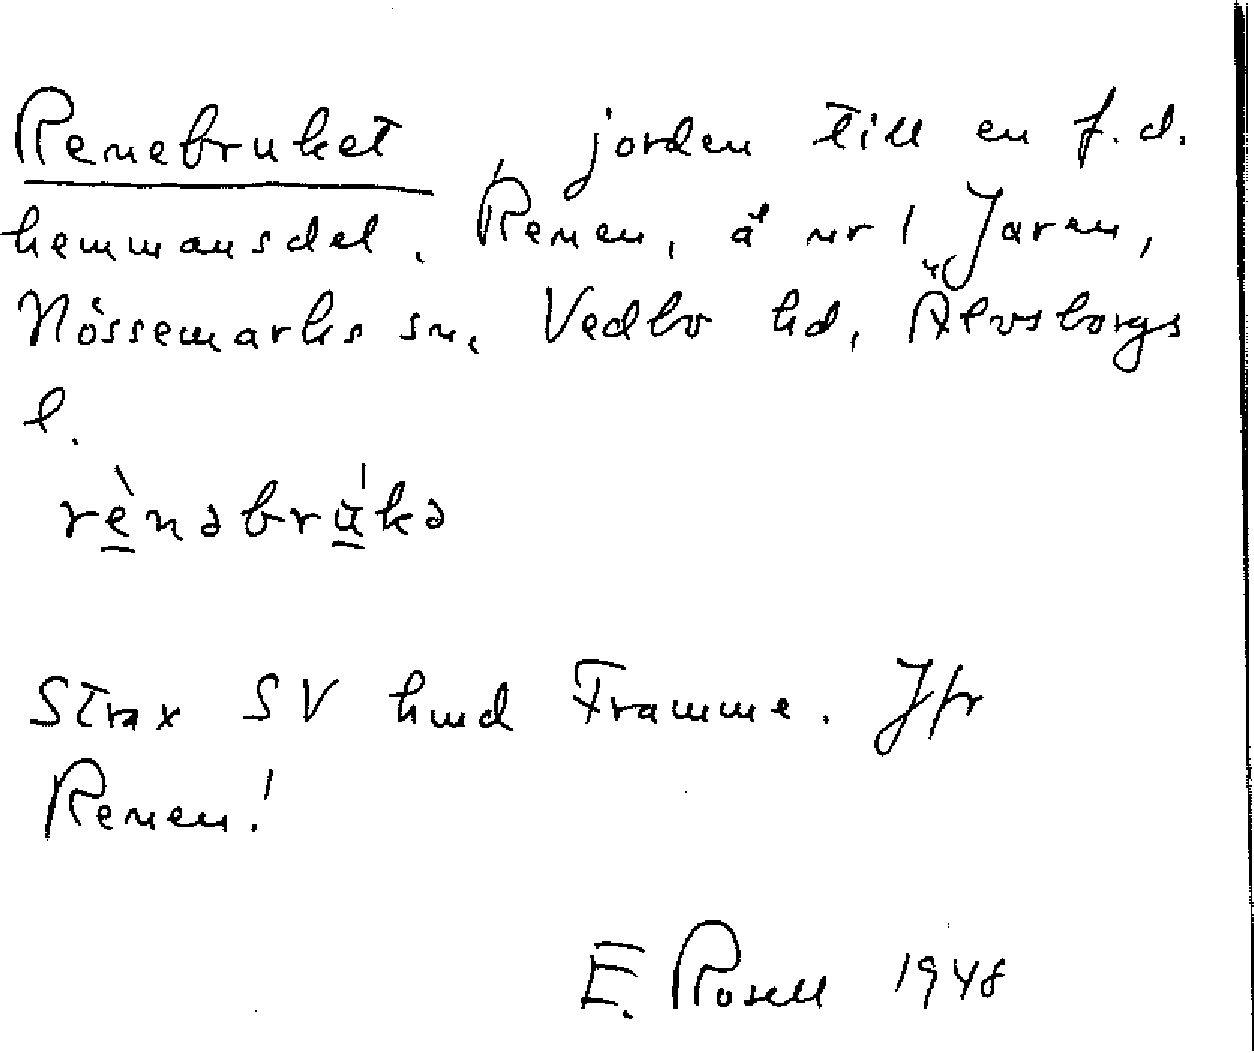 Renebruket, jorden till en f.d.
hemmansdel, Renen, å nr 1 Jaren,
Nössemarks sn, Vedbo hd, Älvsborgs
l.
rè̲nəbrù̲kə
Strax SV hmd Framme. Jfr
Renen!
E. Rosell 1948